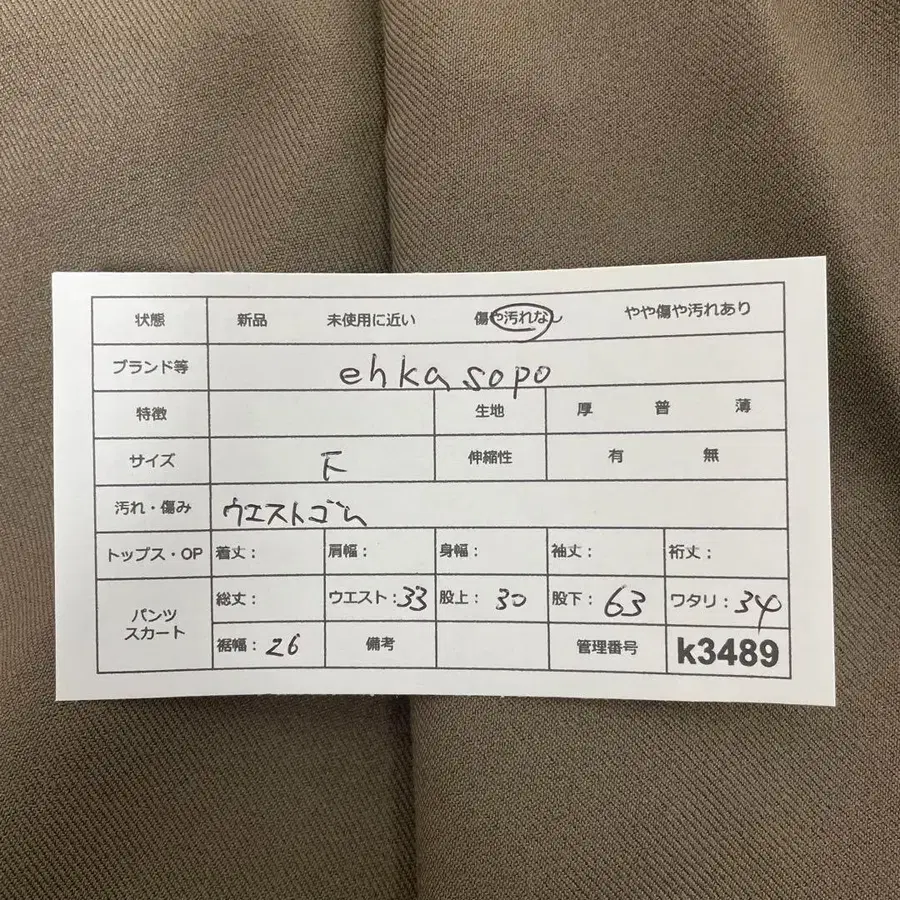 状態 新品 未使用に近い 傷や汚れなし やや傷や汚れあり
ブランド等 ehka sopo
特徴 生地 厚 普 薄
サイズ F 伸縮性 有 無
汚れ・傷み ウエストゴム
トップス・OP 着丈： 肩幅： 身幅： 袖丈： 裄丈：
パンツ スカート 総丈： ウエスト：33 股上：30 股下：63 ワタリ：34
裾幅：26 備考 管理番号 k3489